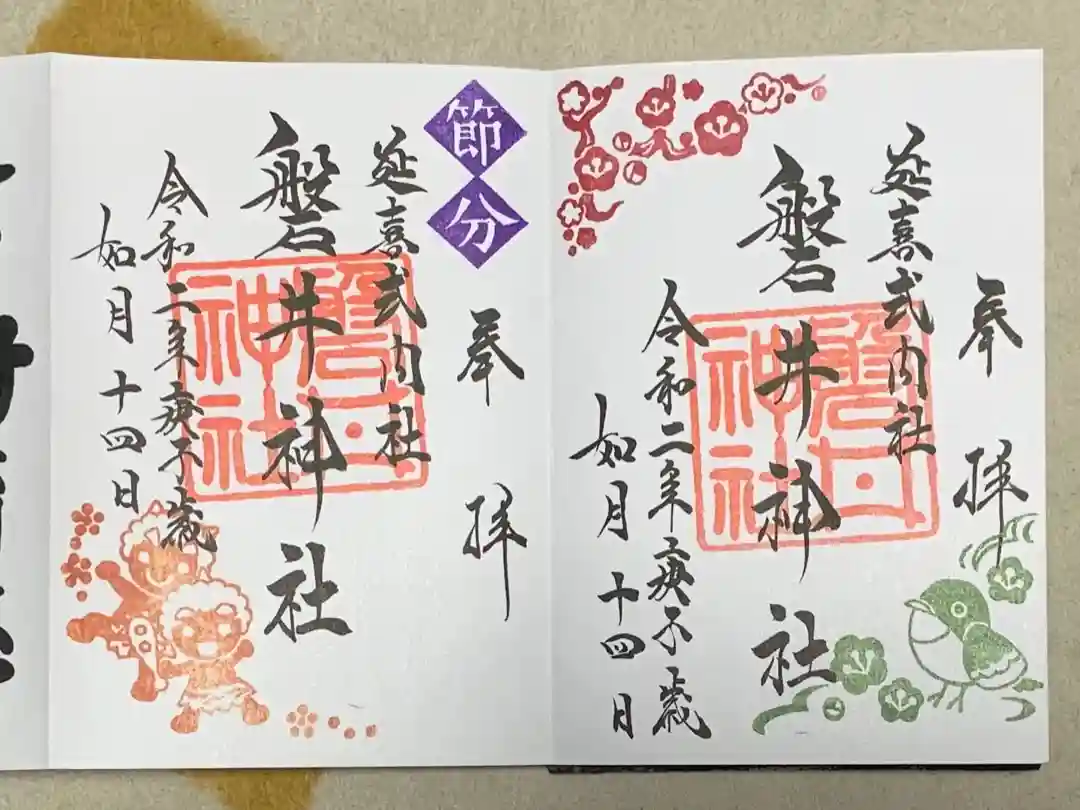 奉拝
延喜式内社
磐井神社
磐井神社
令和二年庚子歳
如月十四日
節分
奉拝
延喜式内社
磐井神社
磐井神社
令和二年庚子歳
如月十四日